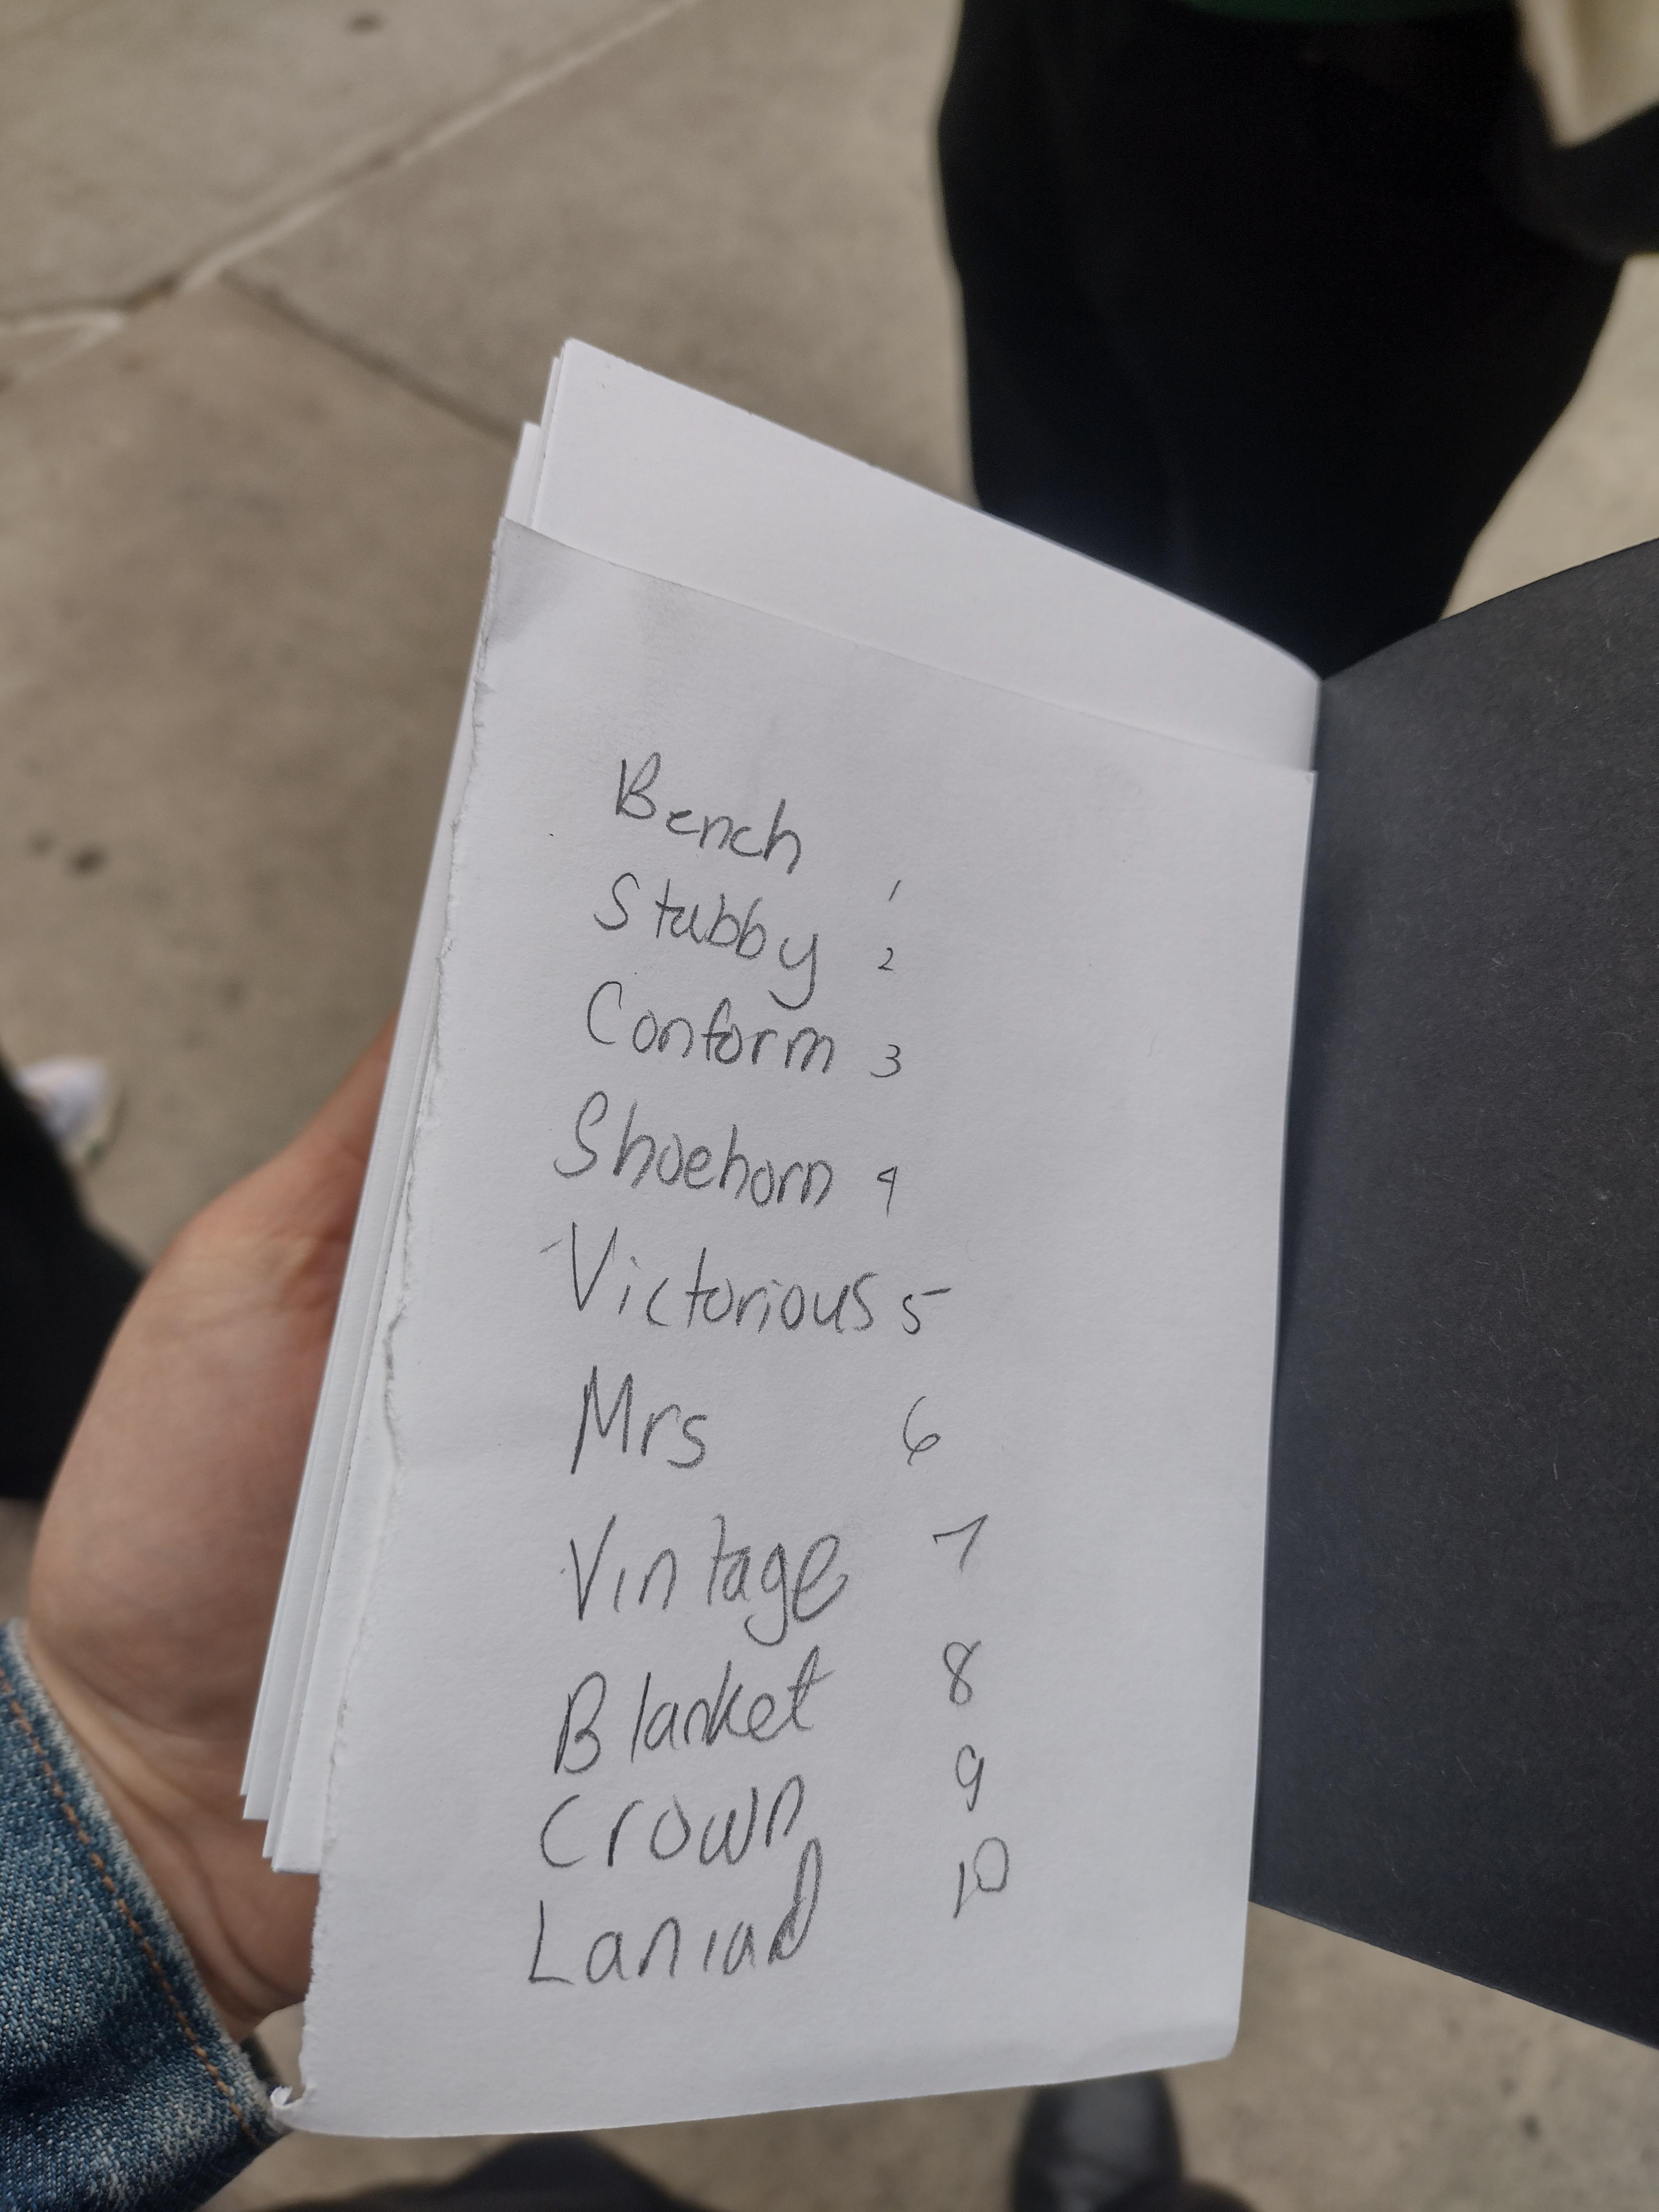 Bench 1
Stubby 2
Conform 3
Shoehorn 4
Victorious 5
Mrs 6
Vintage 7
Blanket 8
Crown 9
10